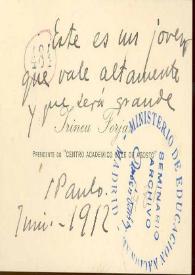 484
Este es un joven
que vale altamente
y que será grande
PRESIDENTE DO "CENTRO ACADEMICO ONZE DE AGOSTO"
S Paulo.
Junio - 1912
MINISTERIO DE EDUCACION
SEMINARIO
ARCHIVO
MADRID